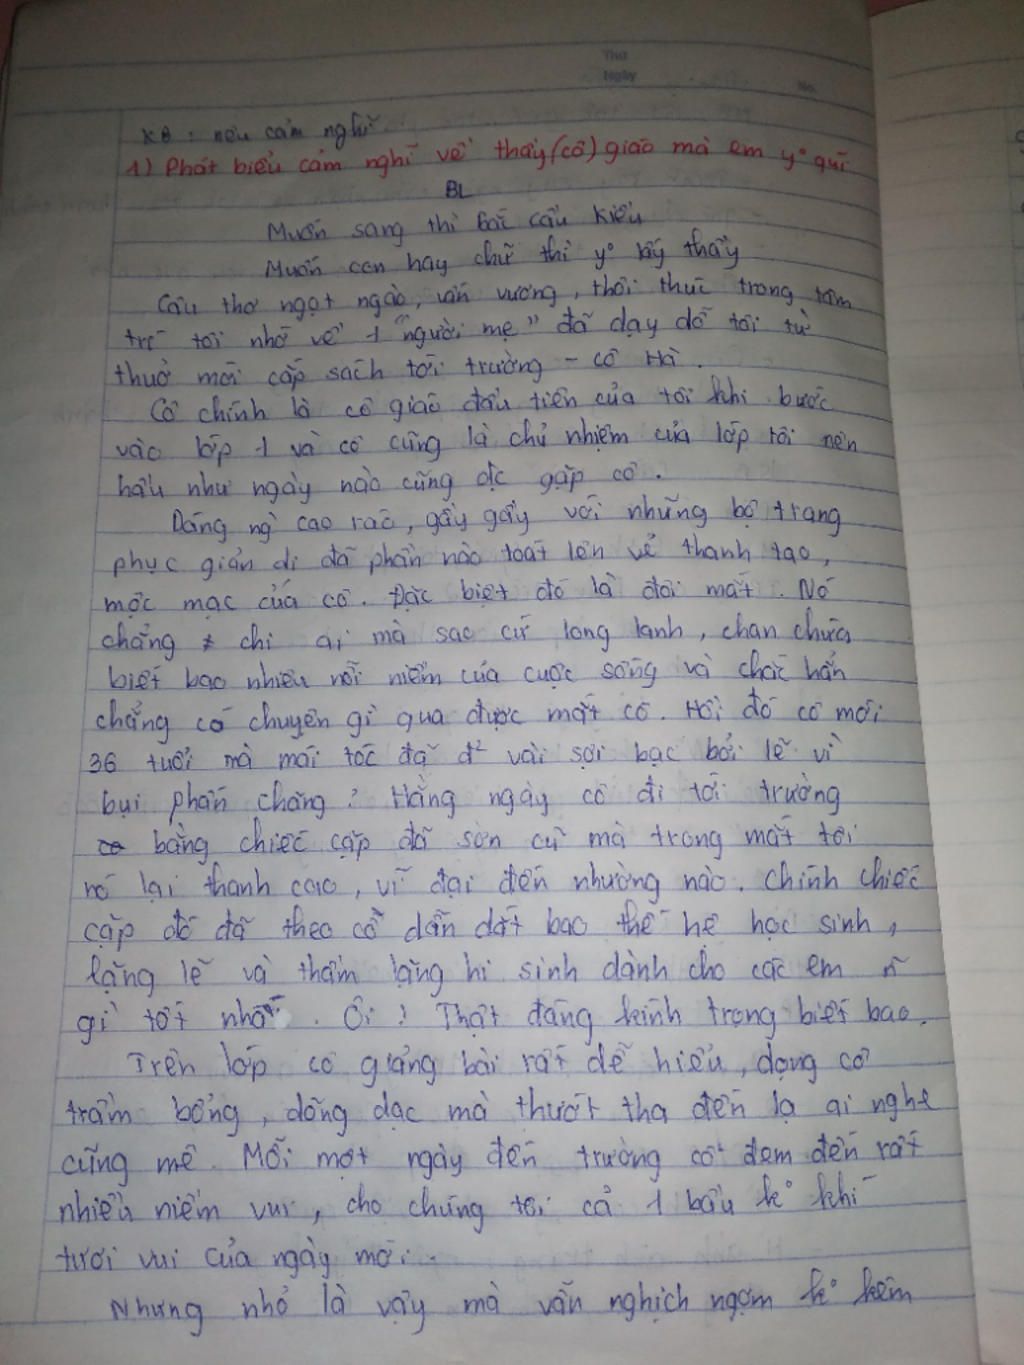 Thứ
Ngày
No.
KB : nêu cảm nghĩ
1) Phát biểu cảm nghĩ về thầy (cô) giáo mà em y° quí
BL
Muốn sang thì bắc cầu kiều
Muốn con hay chữ thì y° lấy thầy
Câu thơ ngọt ngào, vấn vương, thôi thúc trong tâm
trí tôi nhớ về 1 "người mẹ" đã dạy dỗ tôi từ
thuở mới cắp sách tới trường - cô Hà.
Cô chính là cô giáo đầu tiên của tôi khi bước
vào lớp 1 và cô cũng là chủ nhiệm của lớp tôi nên
hầu như ngày nào cũng đc gặp cô.
Dáng ng` cao ráo, gầy gầy với những bộ trang
phục giản dị đã phần nào toát lên vẻ thanh tao,
mộc mạc của cô. Đặc biệt đó là đôi mắt. Nó
chẳng chỉ ai mà sao cứ long lanh, chan chứa
biết bao nhiêu nỗi niềm của cuộc sống và chắc hẳn
chẳng có chuyện gì qua được mắt cô. Hồi đó cô mới
36 tuổi mà mái tóc đã đ² vài sợi bạc bởi lẽ vì
bụi phấn chăng? Hằng ngày cô đi tới trường
bằng chiếc cặp đỏ sờn cũ mà trong mắt tôi
nó lại thanh cao, vĩ đại đến nhường nào. Chính chiếc
cặp đó đã theo cô dẫn dắt bao thế hệ học sinh,
lặng lẽ và thầm lặng hi sinh dành cho các em ~n
gì tốt nhất. Ôi! Thật đáng kính trọng biết bao.
Trên lớp cô giảng bài rất dễ hiểu, giọng cô
trầm bổng, dõng dạc mà thướt tha đến lạ ai nghe
cũng mê. Mỗi một ngày đến trường cô đem đến rất
nhiều niềm vui, cho chúng tôi cả 1 bầu k° khí
tươi vui của ngày mới.
Nhưng nhỏ là vậy mà vẫn nghịch ngợm k° kém